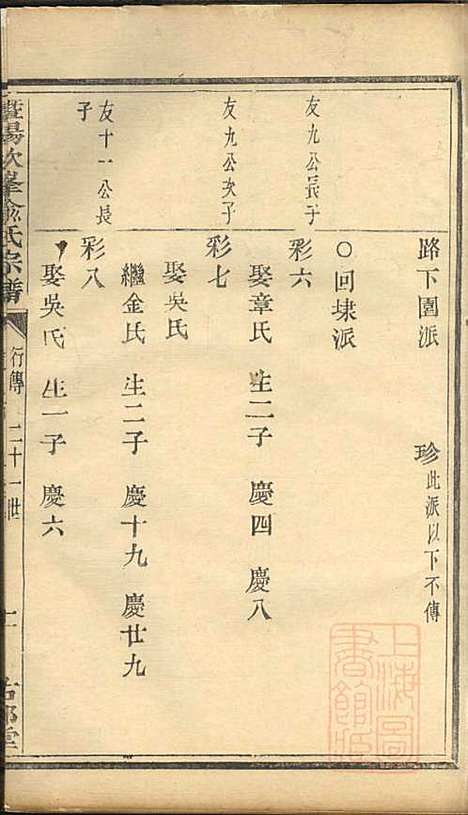 路下園派
珍此派以下不傳
○回埭派
友九公長子
彩六
娶章氏 生二子 慶四 慶八
友九公次子
彩七
娶吳氏
繼金氏 生二子 慶十九 慶廿九
友十一公長子
彩八
娶吳氏 生一子 慶六
暨陽次峯俞氏宗譜
行傳 二十一世
上海圖書館藏